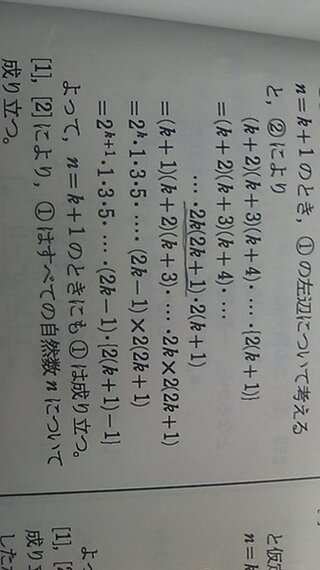 n=k+1のとき，①の左辺について考える
と，②により
(k+2)(k+3)(k+4)・…・{2(k+1)}
=(k+2)(k+3)(k+4)・…
…・2k(2k+1)・2(k+1)
=(k+1)(k+2)(k+3)・…・2k×2(2k+1)
=2^k・1・3・5・…・(2k-1)×2(2k+1)
=2^{k+1}・1・3・5・…・(2k-1)・{2(k+1)-1}
よって，n=k+1のときにも①は成り立つ。
[1]，[2]により，①はすべての自然数nについて
成り立つ。
と仮定
n=k
よっ
[1]，[2
成り立
した